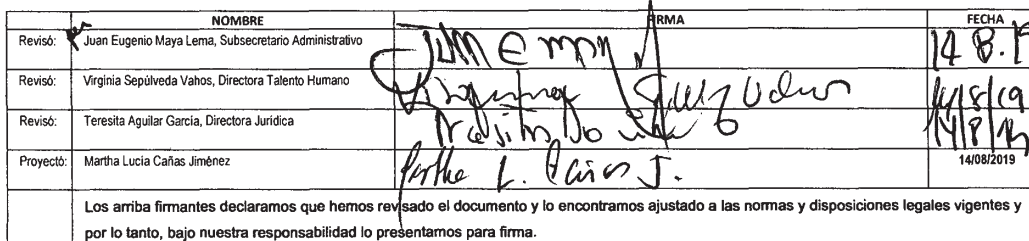 NOMBRE FIRMA FECHA
Revisó: Juan Eugenio Maya Lema, Subsecretario Administrativo 14 8.19
Revisó: Virginia Sepúlveda Vahos, Directora Talento Humano 14/8/19
Revisó: Teresita Aguilar García, Directora Jurídica 14/8/19
Proyectó: Martha Lucia Cañas Jiménez Martha L. Cañas J. 14/08/2019
Los arriba firmantes declaramos que hemos revisado el documento y lo encontramos ajustado a las normas y disposiciones legales vigentes y
por lo tanto, bajo nuestra responsabilidad lo presentamos para firma.